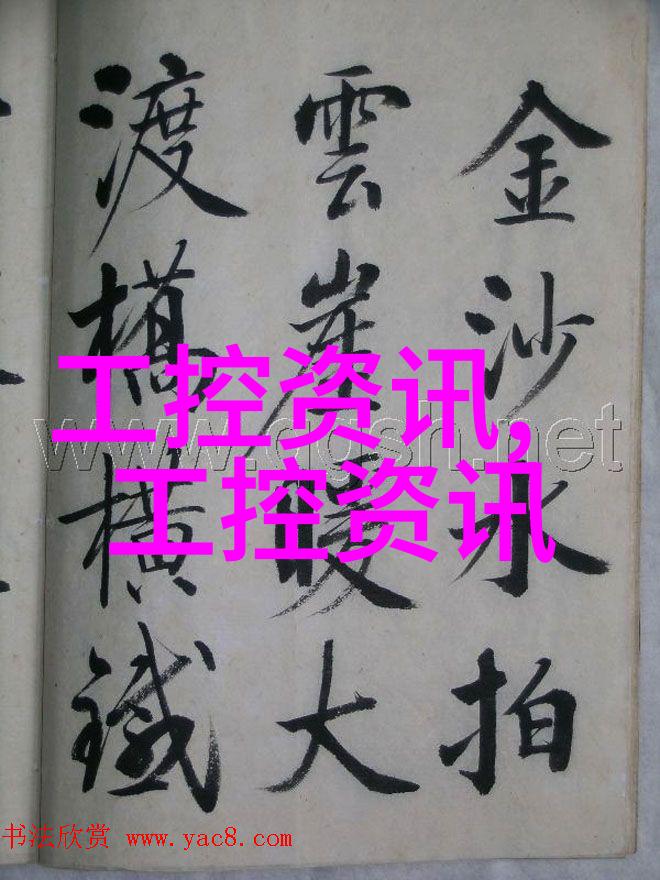 金沙水拍
雲崖暖大
渡橋橫鐵
工控资讯,
工控资讯
书法欣赏 www.yac8.com